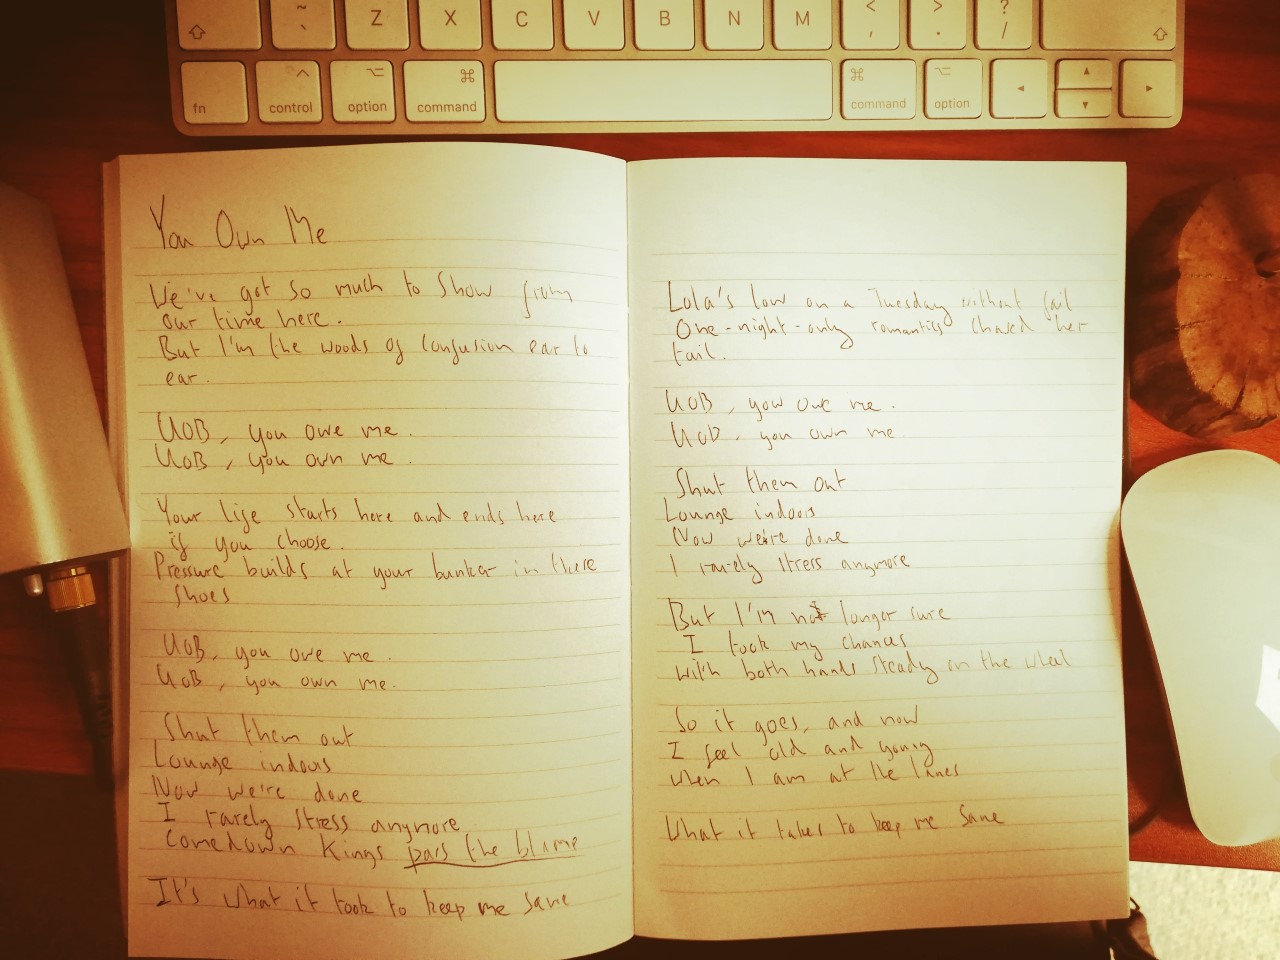 ~
`
Z
X
C
V
B
N
M
<
,
>
.
?
/
fn
control
option
command
command
option
You Own Me
We've got so much to show from
our time here.
But I'm the woods of confusion ear to
ear.
UOB, you owe me.
UOB, you own me.
Your life starts here and ends here
if you choose.
Pressure builds at your bunker in there
shoes
UOB, you owe me.
UOB, you own me.
Shut them out
Lounge indoors
Now we're done
I rarely stress anymore.
Comedown Kings pass the blame
It's what it took to keep me sane
Lola's low on a Tuesday without fail
One-night-only romantics chased her
tail.
UOB, you owe me.
UOB, you own me
Shut them out
Lounge indoors
Now we're done
I rarely stress anymore
But I'm no longer sure
I took my chances
with both hands steady on the wheel
So it goes, and now
I feel old and young
when I am at the lanes
What it takes to keep me sane